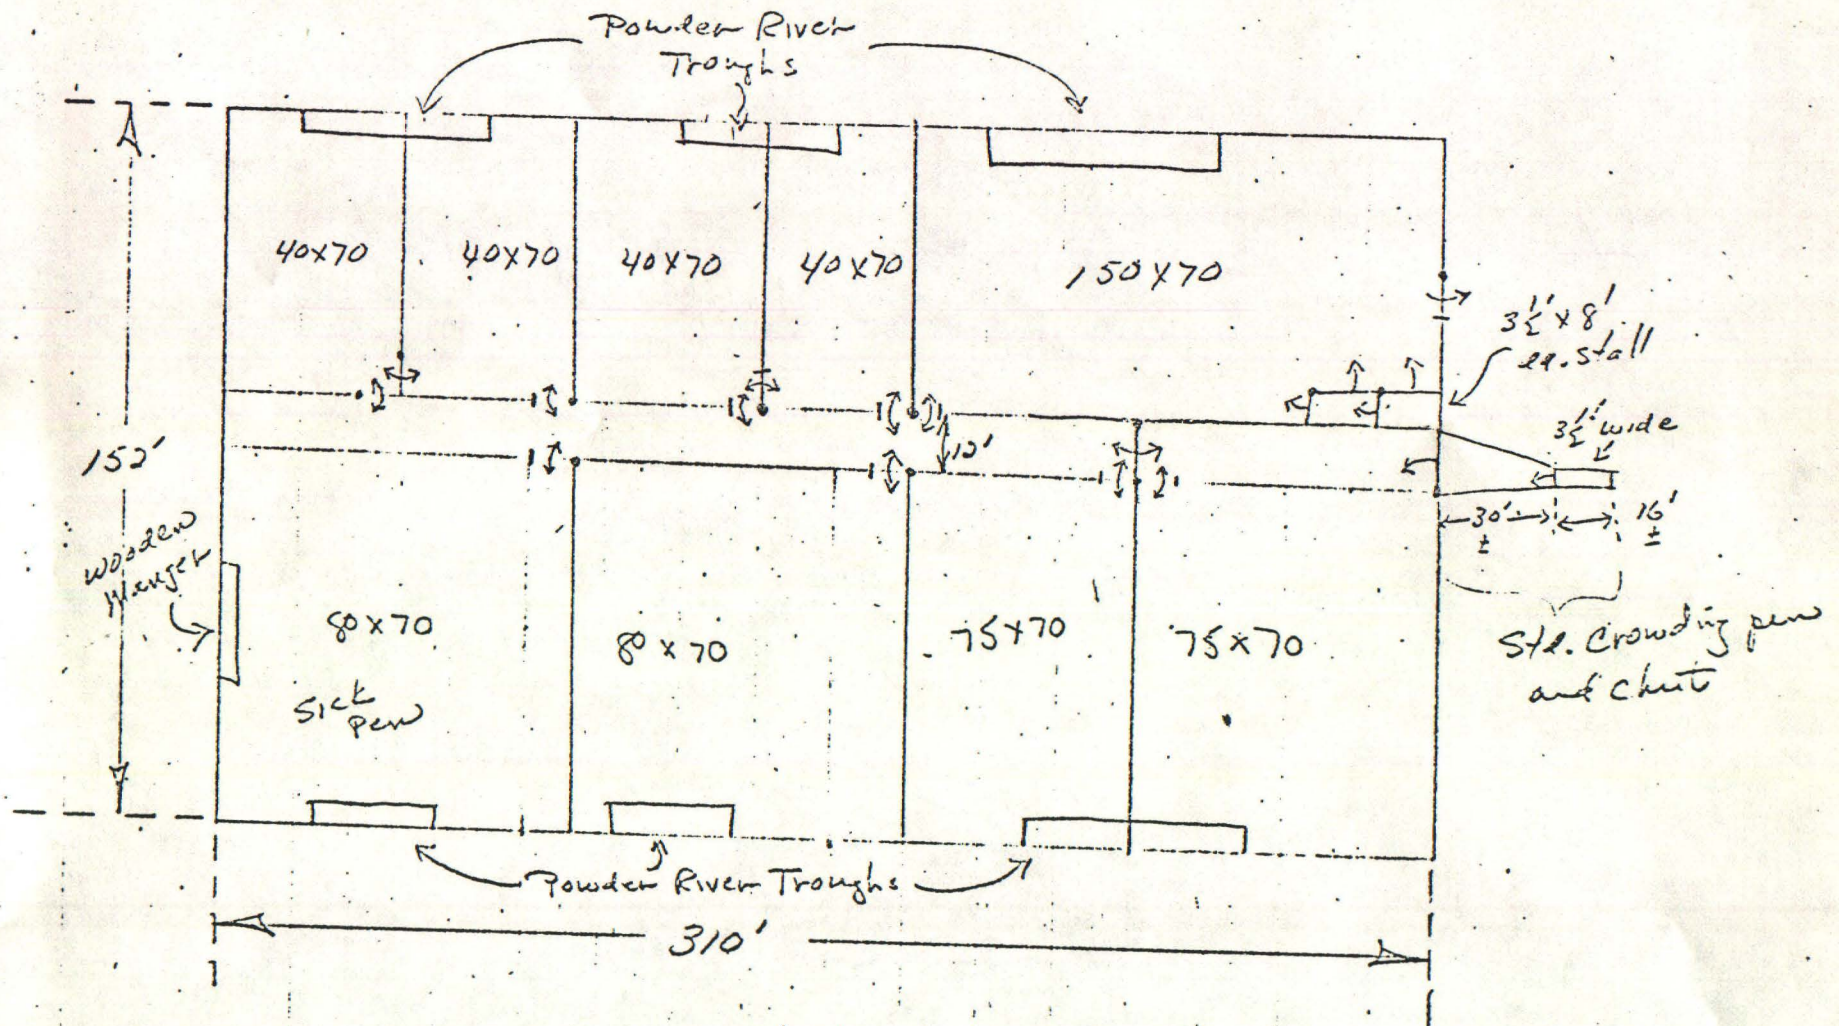 Powder River
Troughs
40x70
40x70
40x70
40x70
150x70
3½' x 8'
ea. stall
3½' wide
12'
152'
30'
±
16'
±
Wooden
Manger
80x70
80x70
75x70
75x70
Sick
pen
Std. Crowding pen
and Chute
Powder River Troughs
310'